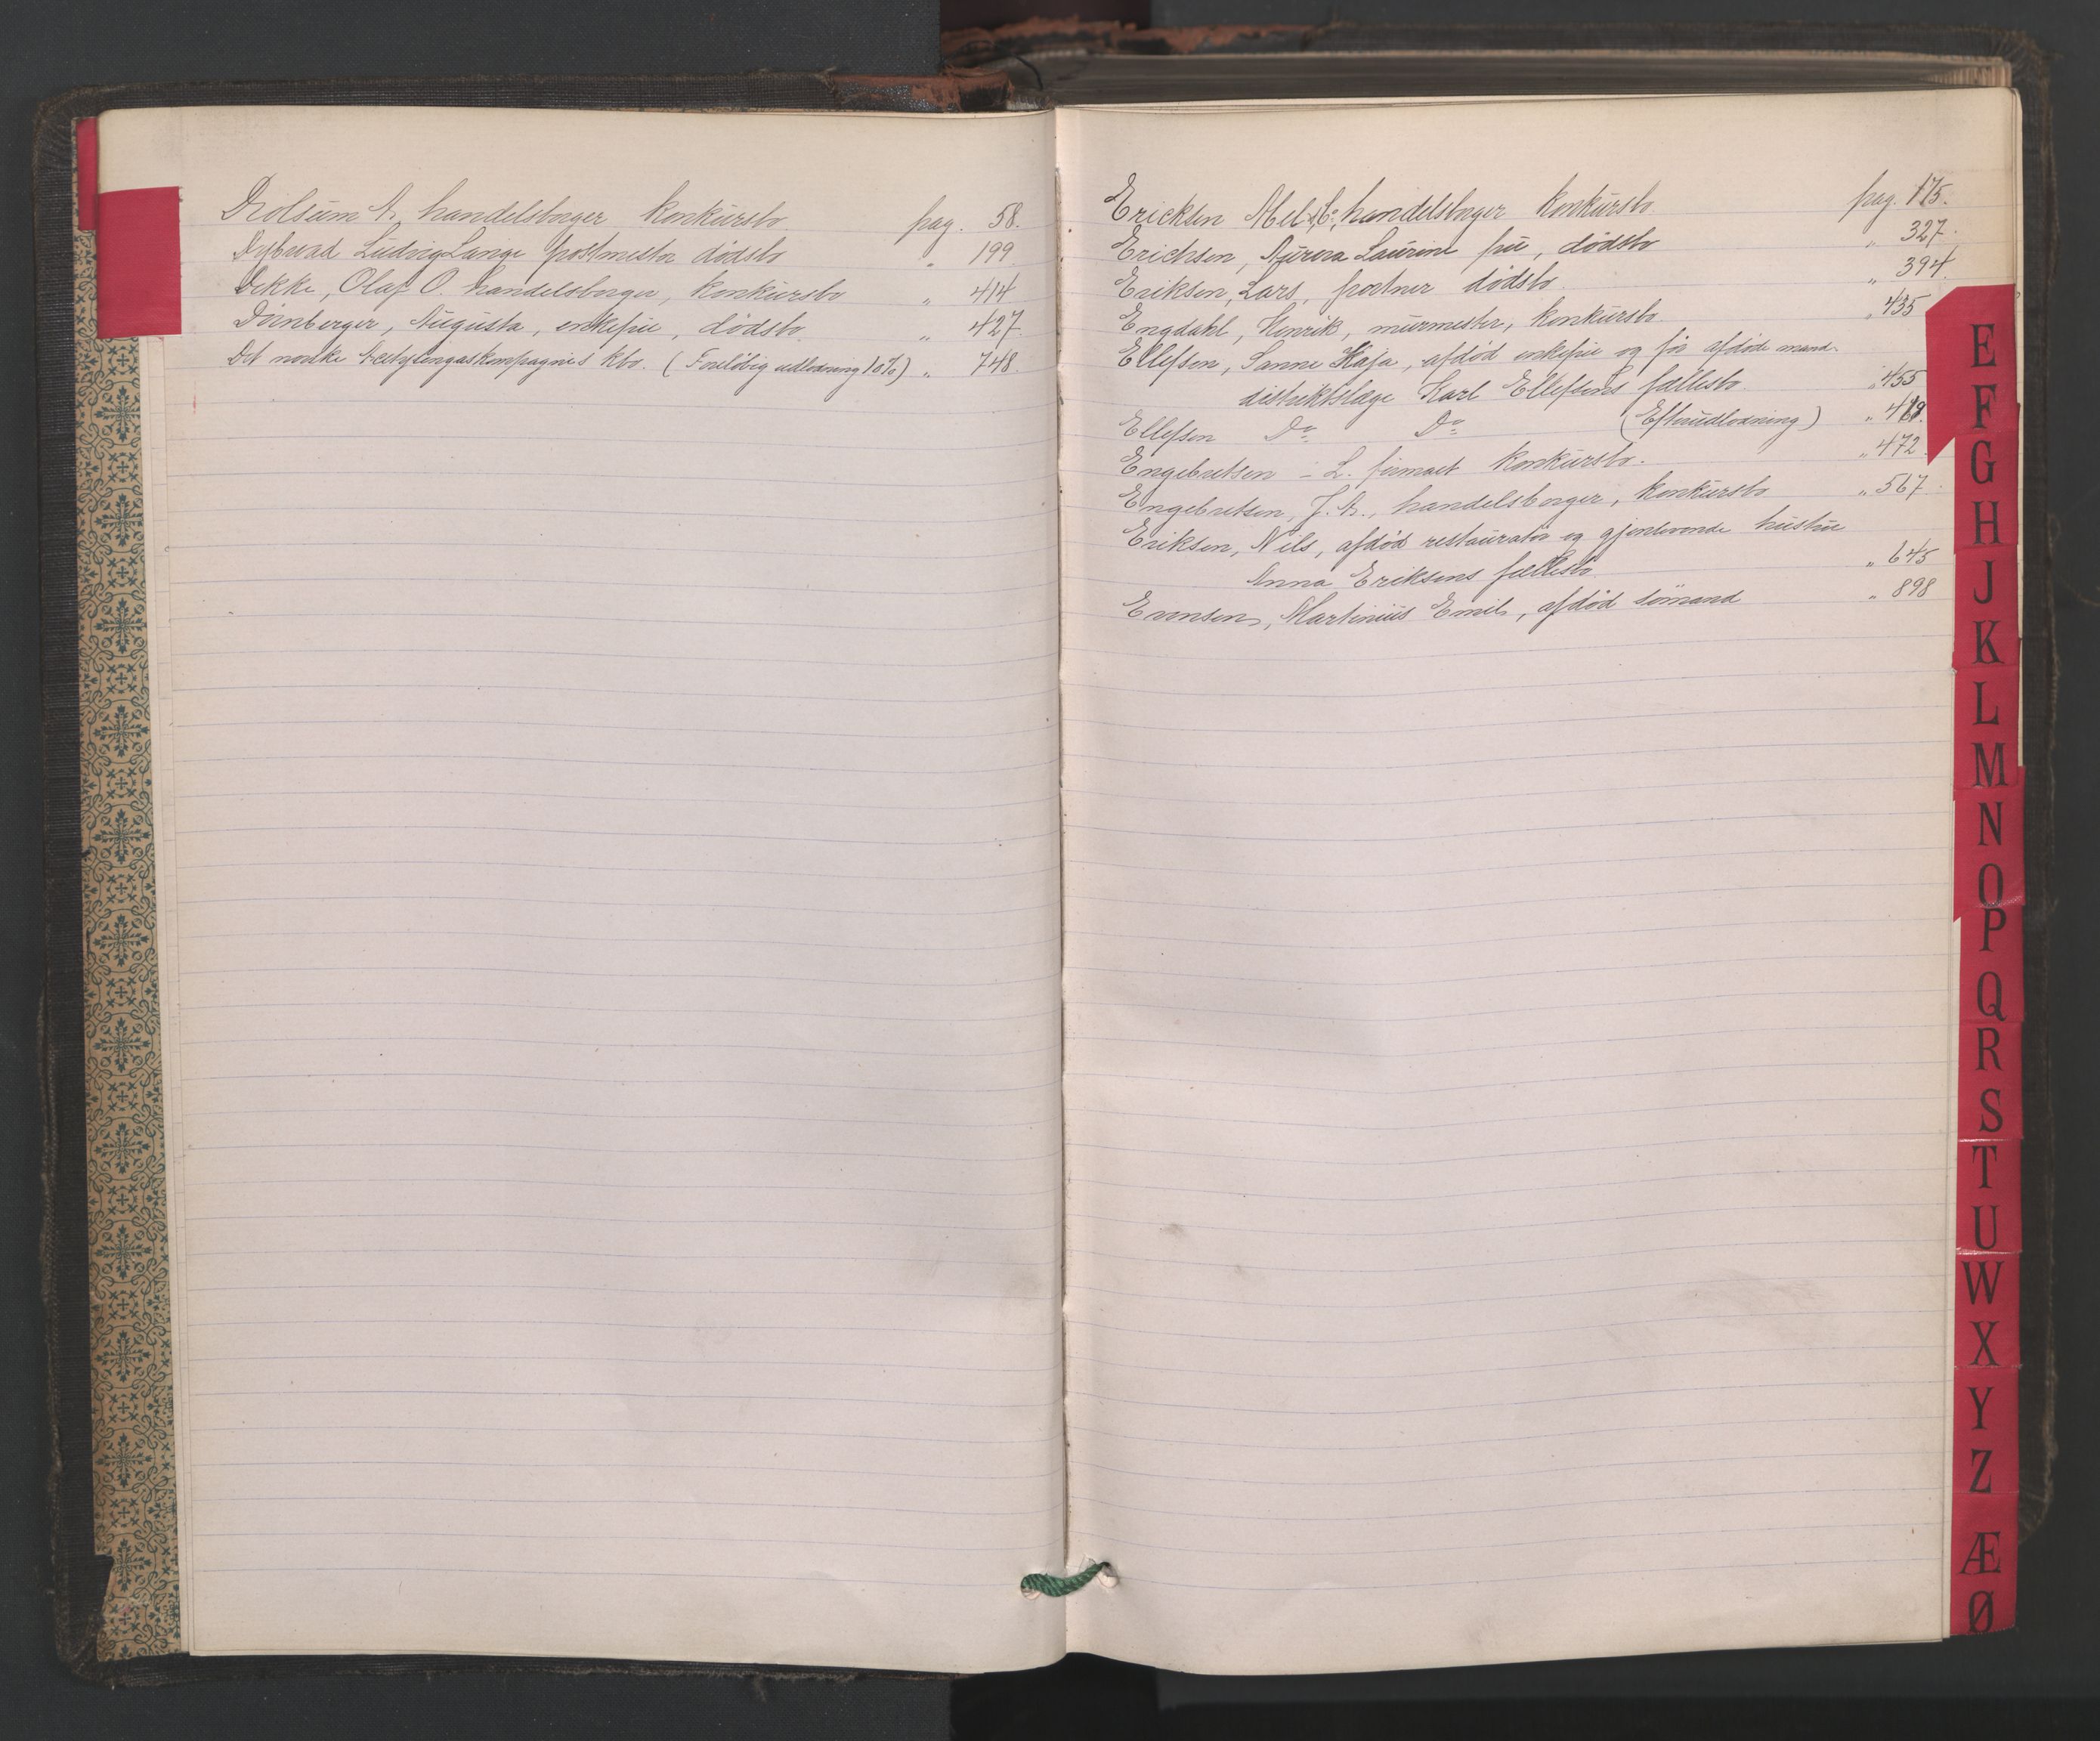 Drolsum A. handelsborger konkursbo. pag. 58.
Dybwad Ludvig Lange postmester dødsbo " 199
Dekke, Olaf O. handelsborger, konkursbo " 414
Dörnberger, Augusta, enkefru, dødsbo. " 427.
Det norske Acetylengaskompagnis kbo. (Foreløbig udlodning 10%) " 748.
Ericksen Abel, & Co, handelsborger konkursbo. pag. 175.
Erichsen, Aurora Laurine fru, dødsbo " 327.
Eriksen, Lars, portner dødsbo. " 394.
Engdahl, Henrik, murmester, konkursbo. " 435
Ellefsen, Sanne Kaja, afdød enkefru og før afdøde mand
distriktslæge Karl Ellefsens fællesbo. " 455
Ellefsen Do Do (Efterudlodning) "
Engebretsen - L. firmaet konkursbo. " 472.
Engebretsen, J. A., handelsborger, konkursbo " 567.
Eriksen, Nils, afdød restauratør og gjenlevende hustru
Anna Eriksens fællesbo " 645
Evensen, Martinius Emil, afdød sømand " 898
E
F
G
H
J
K
L
M
N
O
P
Q
R
S
T
U
W
X
Y
Z
Æ
Ø